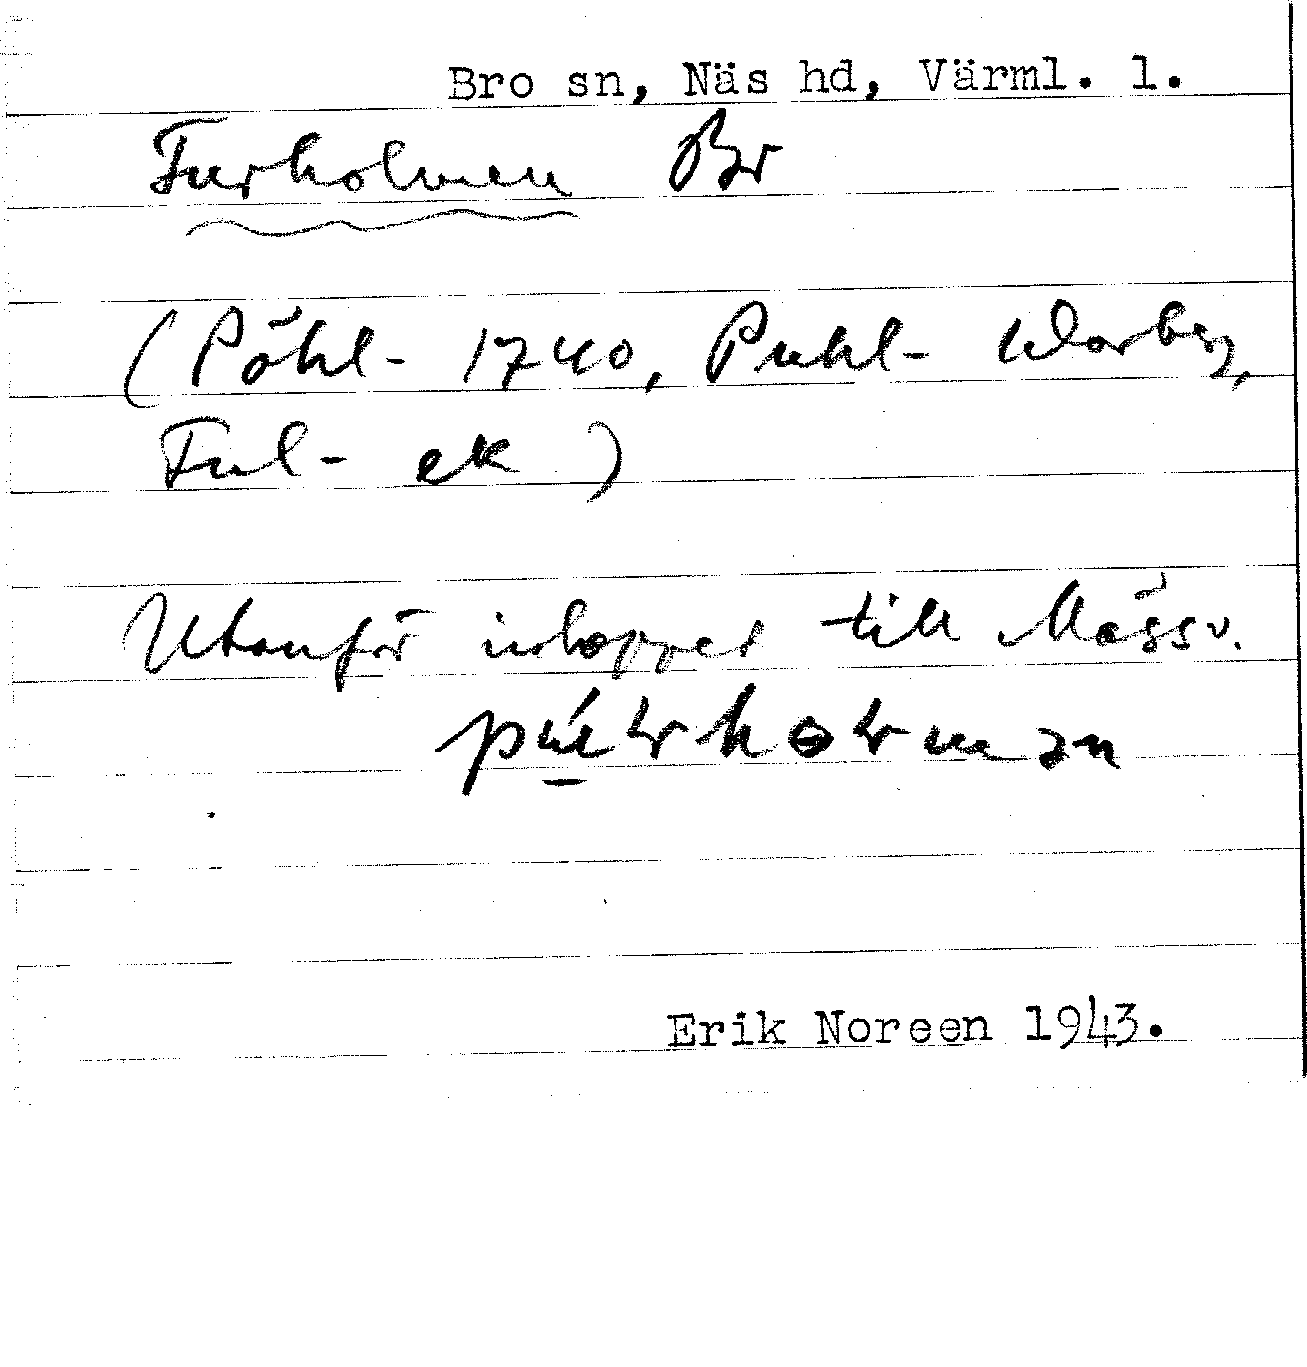 Bro sn, Näs hd, Värml. l.
Furholmen Br
(Pöhl- 1740, Puhl- Warberg,
Ful- ek)
Utanför inloppet till Mässv.
Erik Noreen 1943.